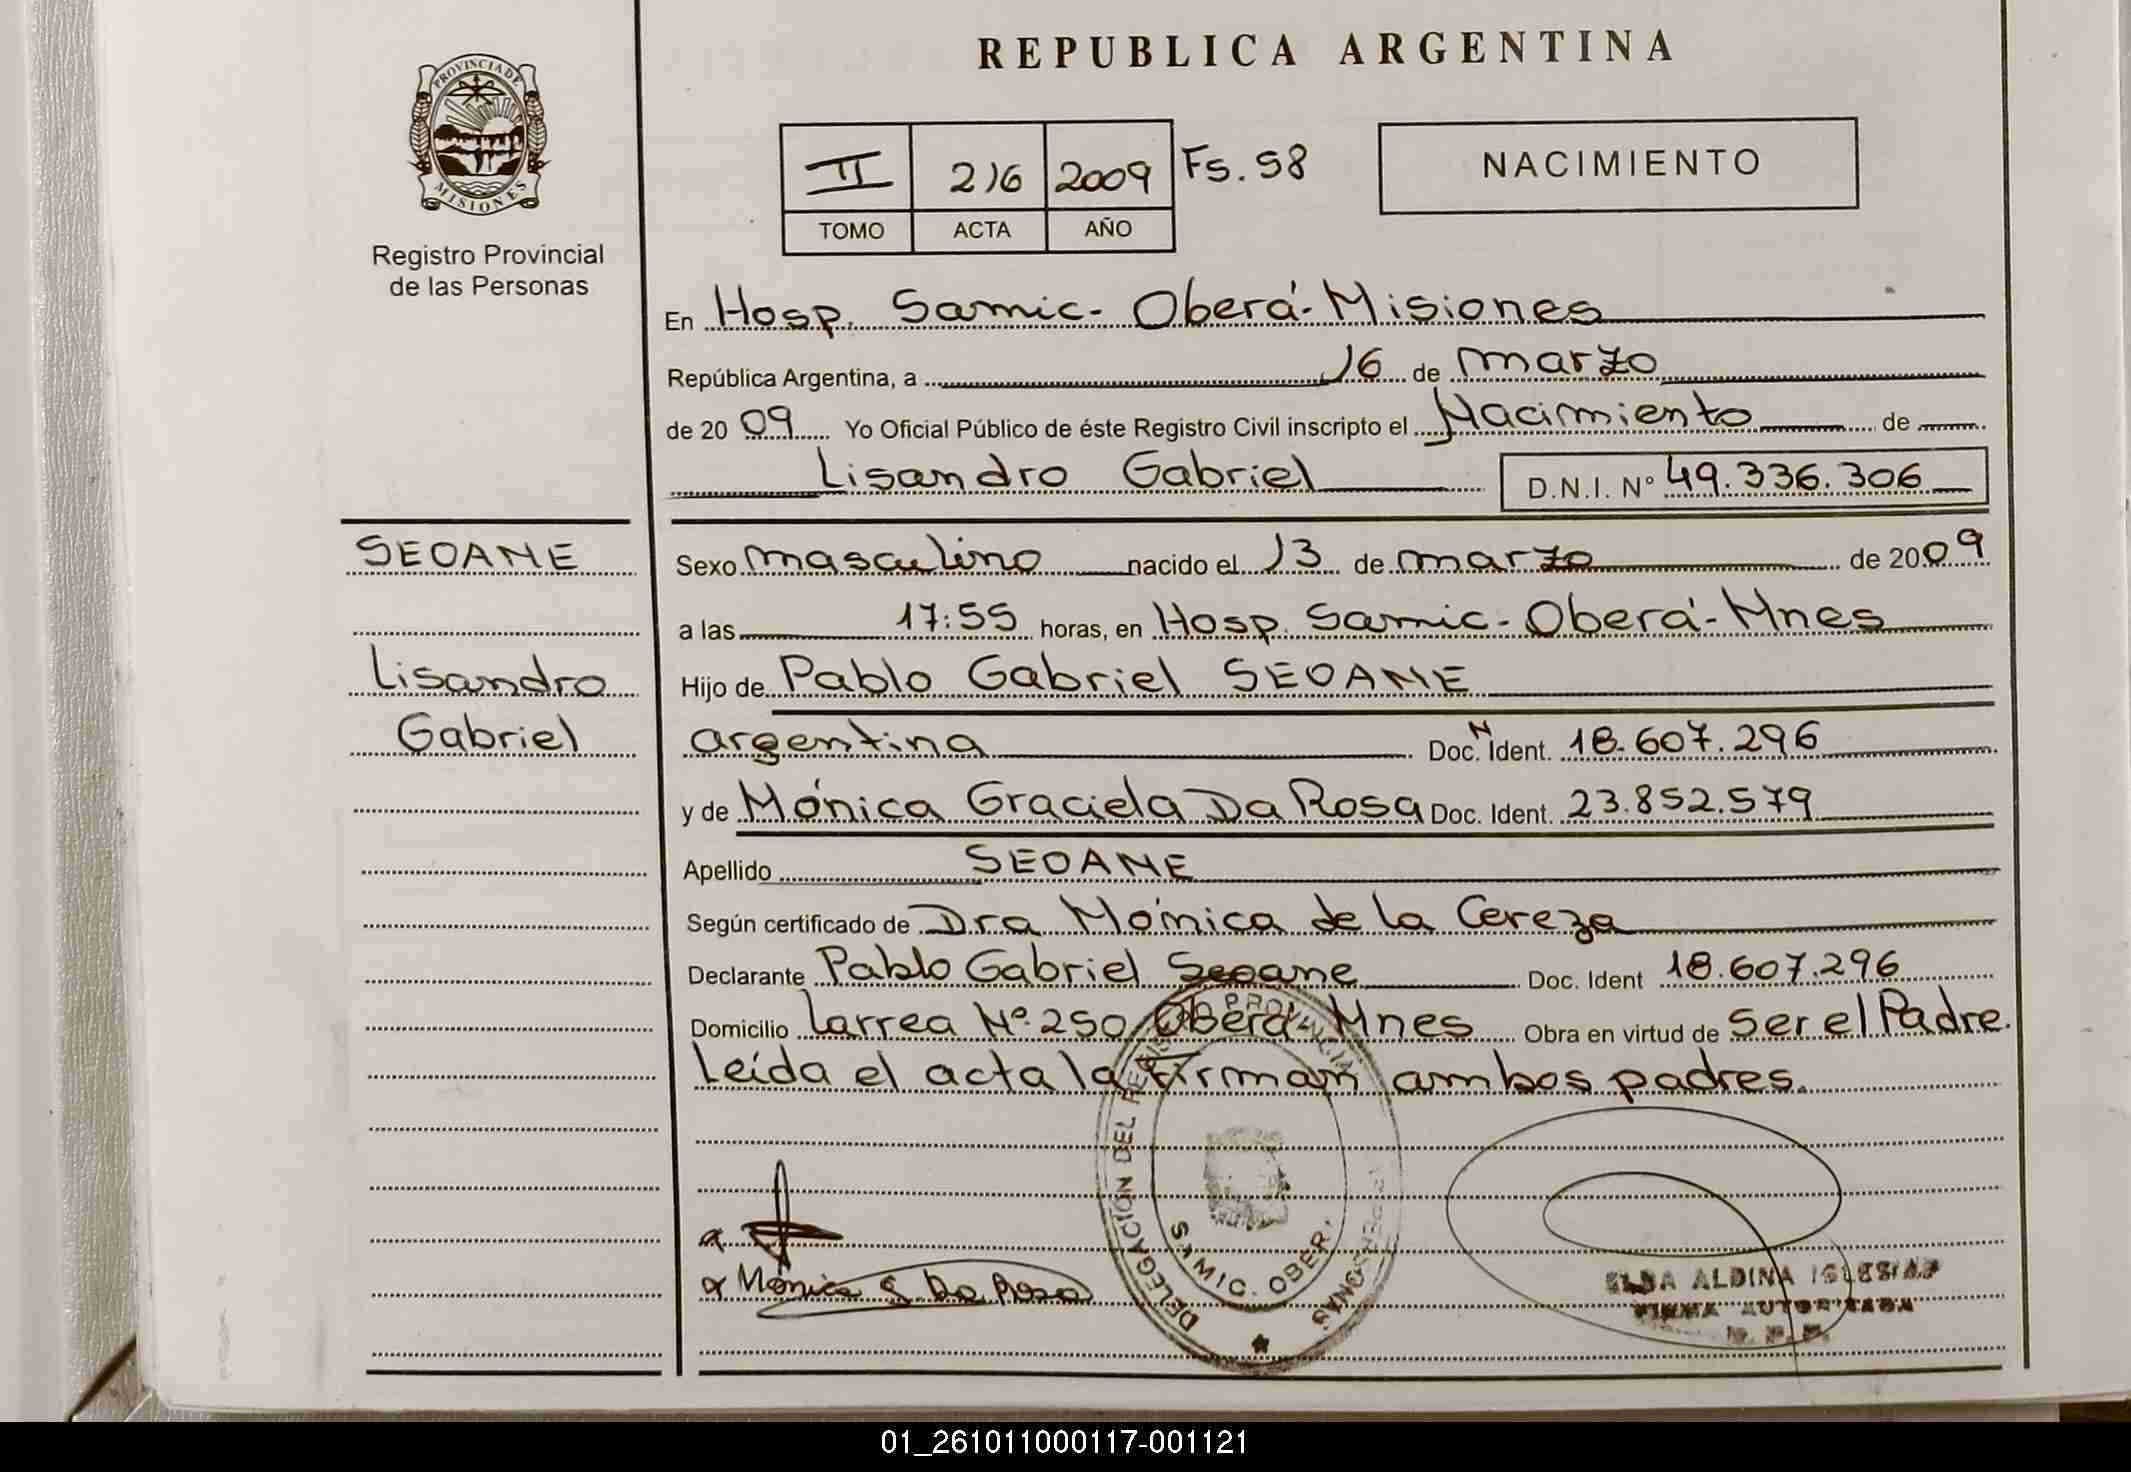 REPUBLICA ARGENTINA
PROVINCIA DE
MISIONES
Registro Provincial
de las Personas
II 216 2009 Fs. 58
TOMO ACTA AÑO
NACIMIENTO
En Hosp. Samic - Oberá - Misiones
República Argentina, a 16 de marzo
de 2009 Yo Oficial Público de éste Registro Civil inscripto el Nacimiento de
Lisandro Gabriel D.N.I. N° 49.336.306
SEOANE
Lisandro
Gabriel
Sexo masculino nacido el 13 de marzo de 2009
a las 17:55 horas, en Hosp. Samic - Oberá - Mnes
Hijo de Pablo Gabriel SEOANE
argentina Doc. N Ident. 18.607.296
y de Mónica Graciela Da Rosa Doc. Ident. 23.852.579
Apellido SEOANE
Según certificado de Dra Mónica de la Cereza
Declarante Pablo Gabriel Seoane Doc. Ident 18.607.296
Domicilio Larrea Nº 250 Oberá - Mnes Obra en virtud de Ser el Padre.
Leída el acta la firman ambos padres.
Mónica G. Da Rosa
DELEGACIÓN DEL PROVINCIAL PERSONAS
SAMIC. OBER
ELBA ALDINA IGLESIAS
FIRMA AUTORIZADA
01_261011000117-001121